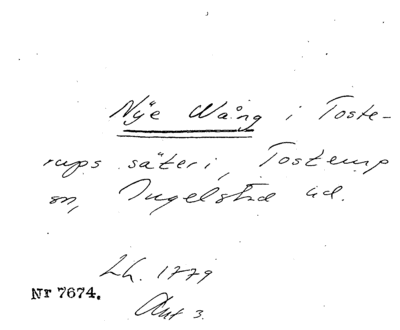 Nÿe Wång i Toste-
rups säteri, Tosterup
sn, Ingelstad hd.
Lh. 1779
Nr 7674.
Akt 3.